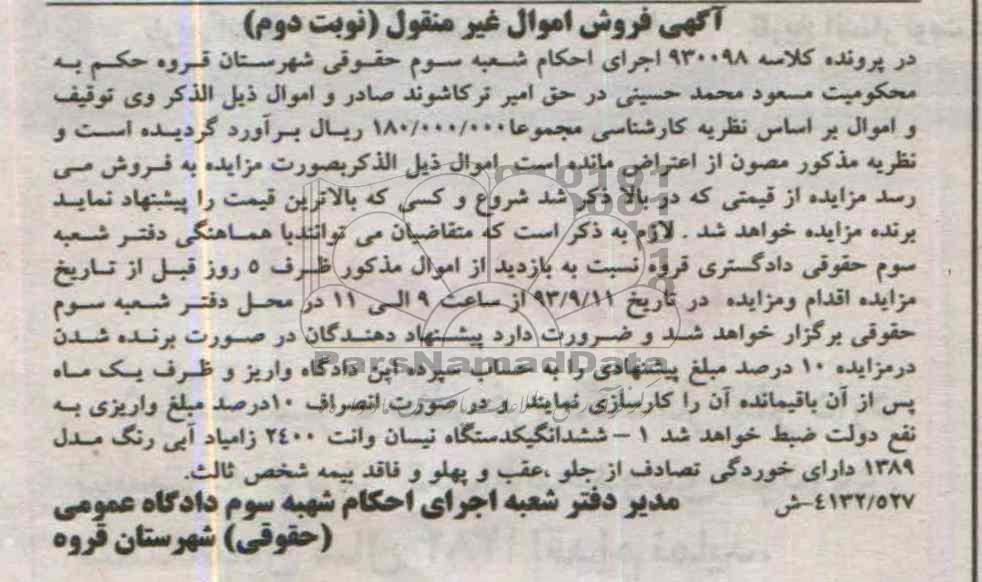 آگهی فروش اموال غیر منقول (نوبت دوم)
در پرونده کلاسه ۹۳۰۰۹۸ اجرای احکام شعبه سوم حقوقی شهرستان قروه حکم به
محکومیت مسعود محمد حسینی در حق امیر ترکاشوند صادر و اموال ذیل الذکر وی توقیف
و اموال بر اساس نظریه کارشناسی مجموعا ۱۸۰/۰۰۰/۰۰۰ ریال برآورد گردیده است و
نظریه مذکور مصون از اعتراض مانده است اموال ذیل الذکربصورت مزایده به فروش می
رسد مزایده از قیمتی که در بالا ذکر شد شروع و کسی که بالاترین قیمت را پیشنهاد نماید
برنده مزایده خواهد شد . لازم به ذکر است که متقاضیان می توانندبا هماهنگی دفتر شعبه
سوم حقوقی دادگستری قروه نسبت به بازدید از اموال مذکور ظرف ۵ روز قبل از تاریخ
مزایده اقدام ومزایده در تاریخ ۹۳/۹/۱۱ از ساعت ۹ الی ۱۱ در محل دفتر شعبه سوم
حقوقی برگزار خواهد شد و ضرورت دارد پیشنهاد دهندگان در صورت برنده شدن
ParsNamadData
درمزایده ۱۰ درصد مبلغ پیشنهادی را به حساب سپرده این دادگاه واریز و ظرف یک ماه
پس از آن باقیمانده آن را کارسازی نمایند و در صورت انصراف ۱۰درصد مبلغ واریزی به
نفع دولت ضبط خواهد شد ۱ – ششدانگیکدستگاه نیسان وانت ۲۴۰۰ زامیاد آبی رنگ مدل
۱۳۸۹ دارای خوردگی تصادف از جلو ،عقب و پهلو و فاقد بیمه شخص ثالث.
۴۱۳۲/۵۲۷-ش مدیر دفتر شعبه اجرای احکام شهبه سوم دادگاه عمومی
(حقوقی) شهرستان قروه